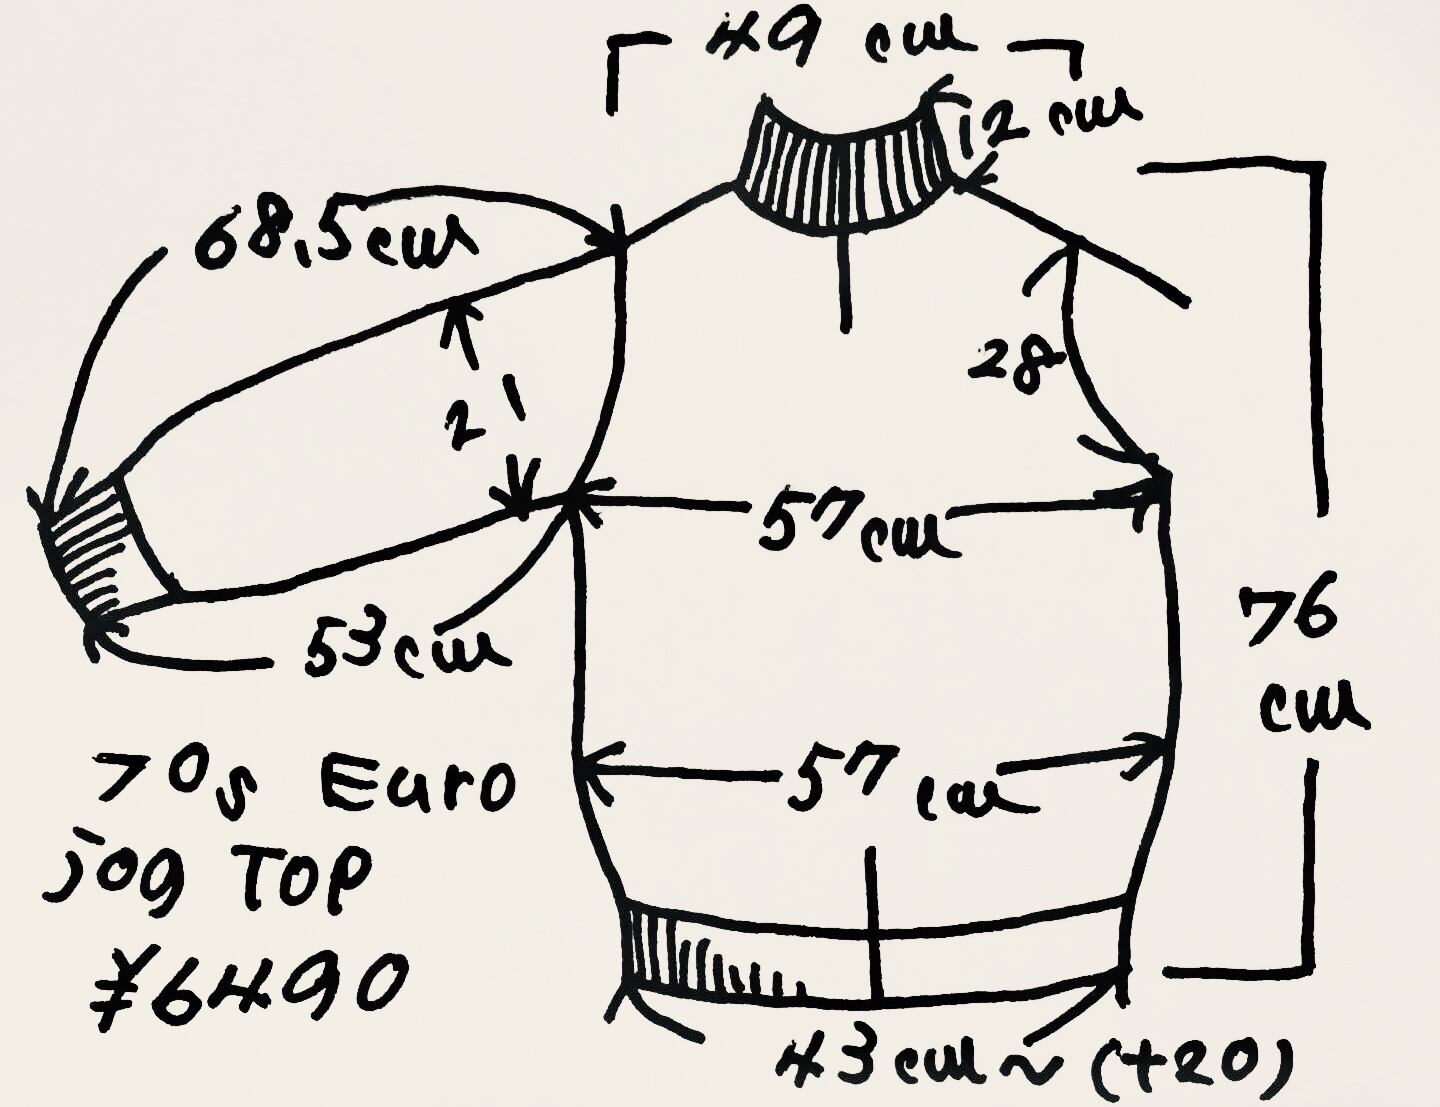 49 cm
12 cm
68.5cm
28
21
57cm
53cm
76
cm
57 cm
70s Euro
jog TOP
¥6490
43cm~ (+20)